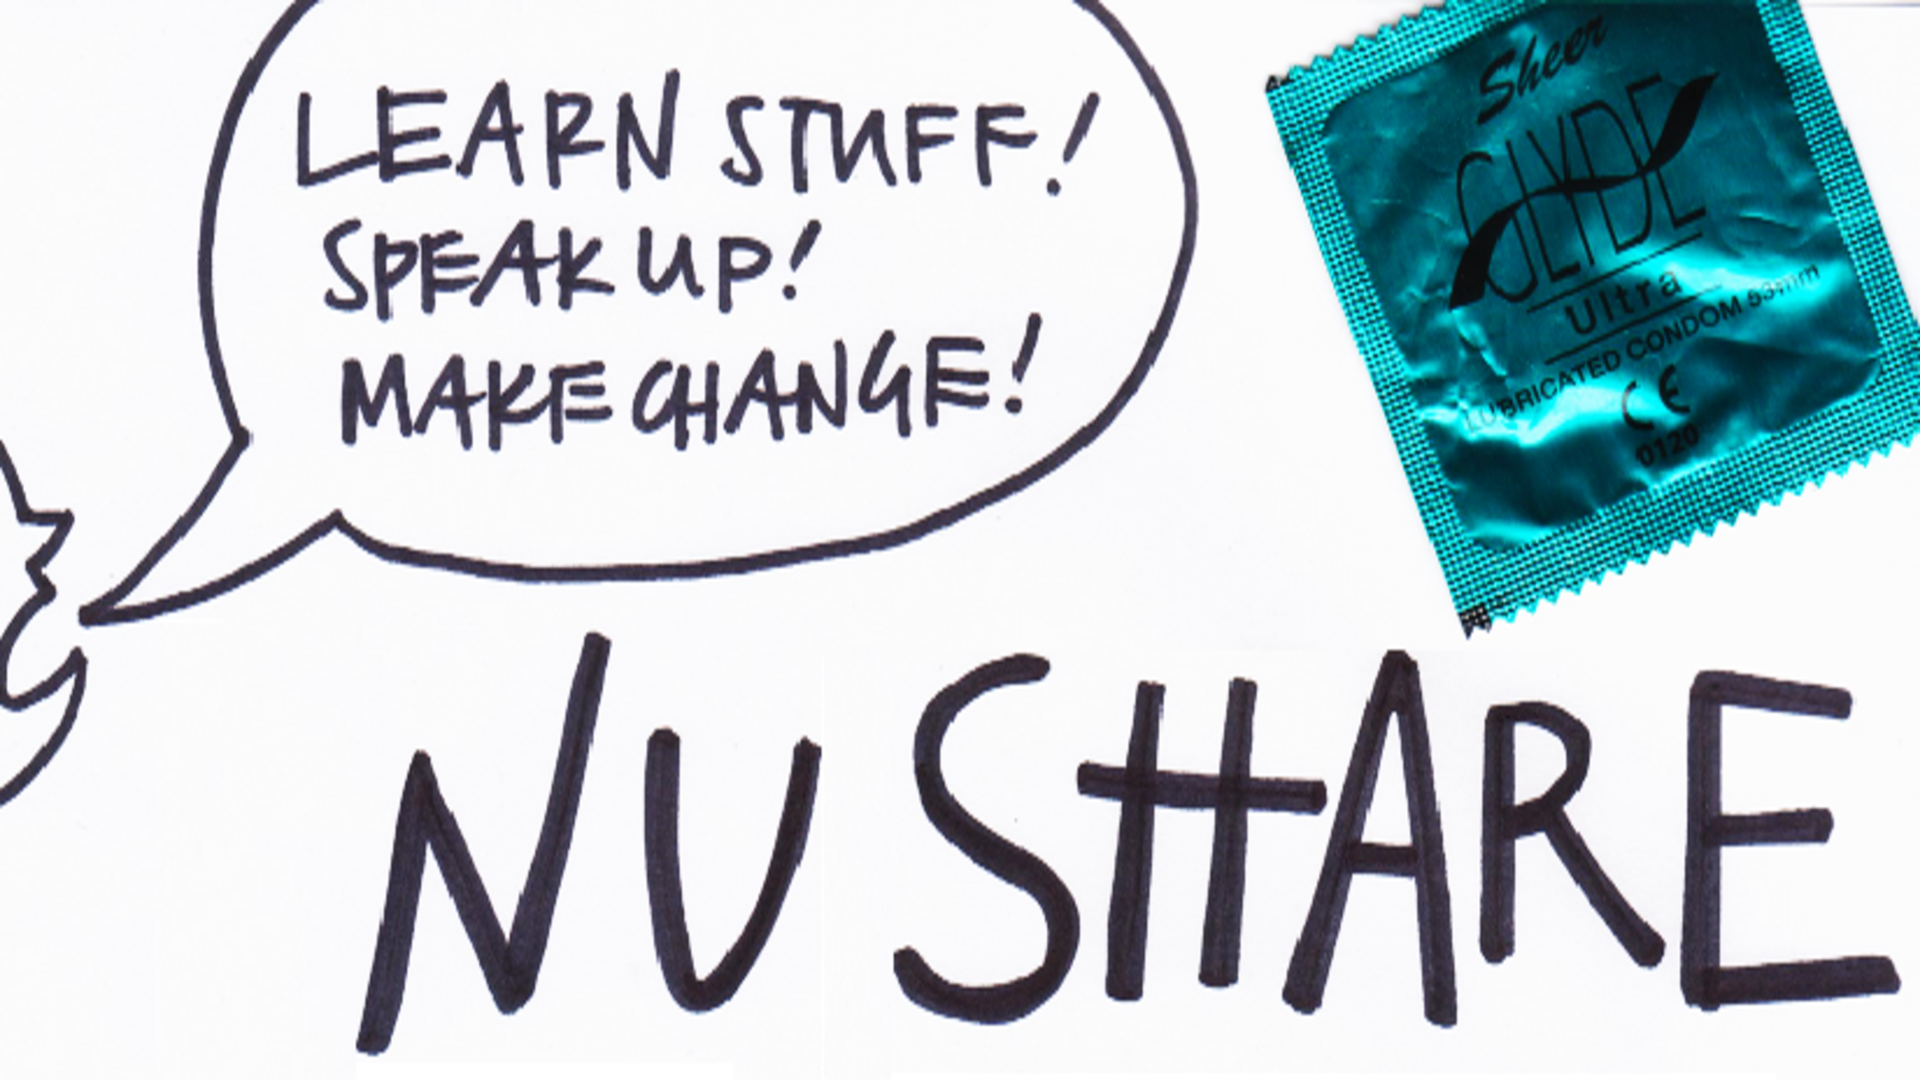 LEARN STUFF!
SPEAK UP!
MAKE CHANGE!
Sheer
GLYDE
Ultra
LUBRICATED CONDOM 53mm
CE
0120
NU SHARE